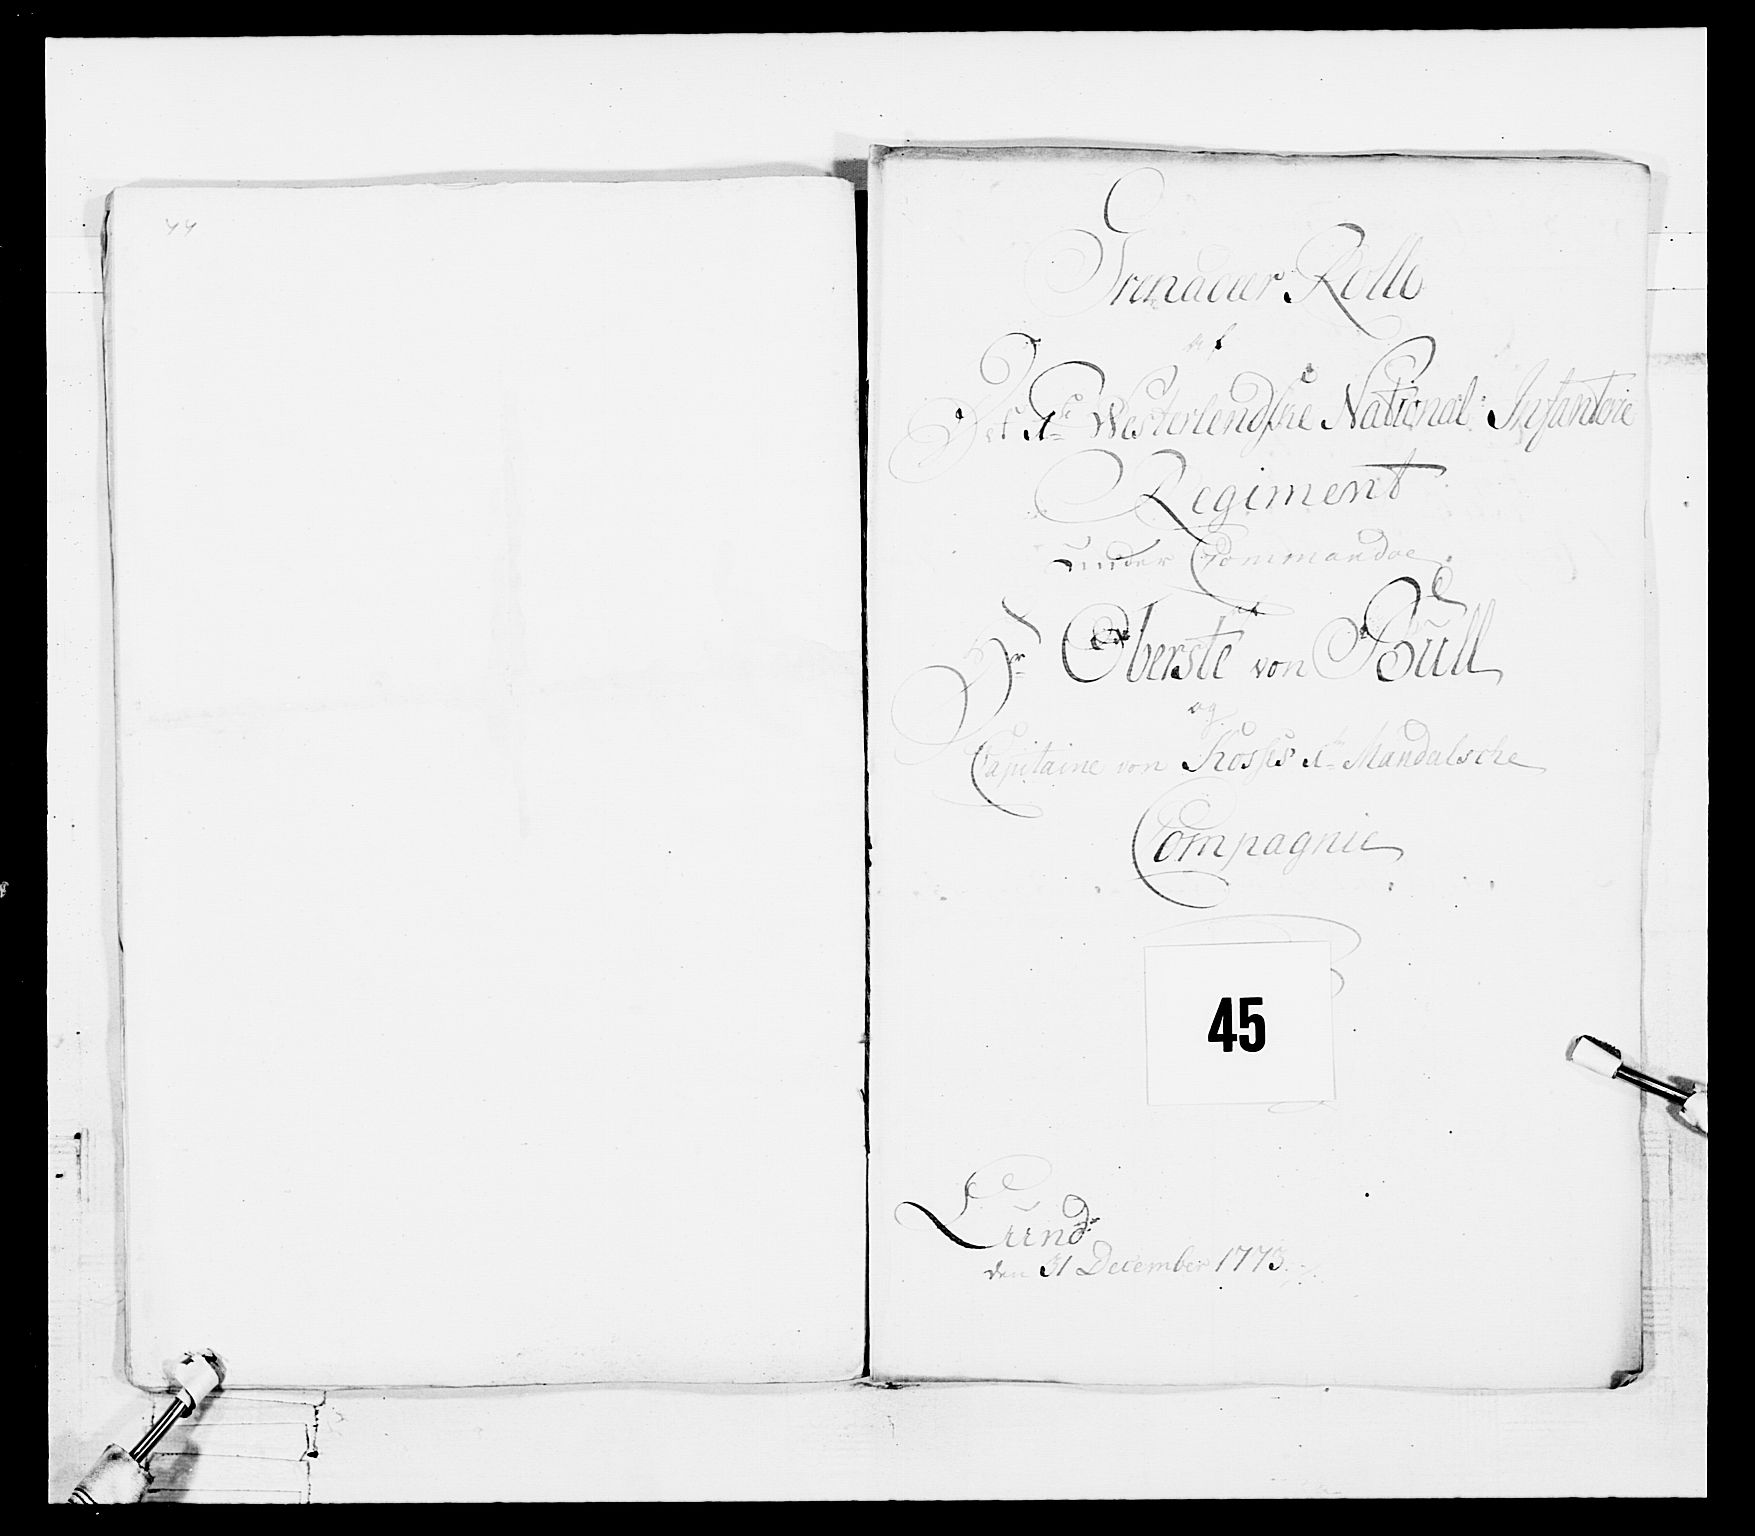 44
Grenadeer Rolle
af
Det 1te Westerlendske National Infanterie
Regiment
under Commandoe
Hr Oberste von Büll
og
Capitaine von Kosses 1te Mandalsche
Compagnie
45
Lund
den 31 December 1773